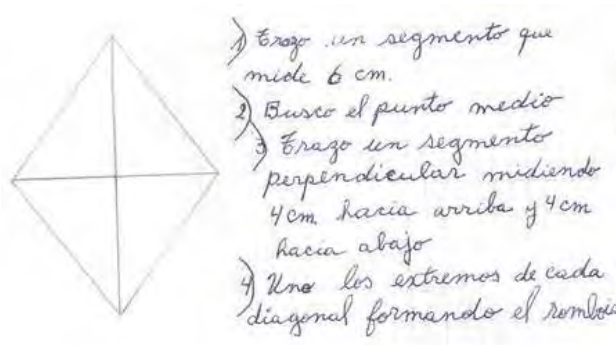 1) Trazo un segmento que
mide 6 cm.
2) Busco el punto medio
3) Trazo un segmento
perpendicular midiendo
4 cm hacia arriba y 4 cm
hacia abajo
4) Uno los extremos de cada
diagonal formando el